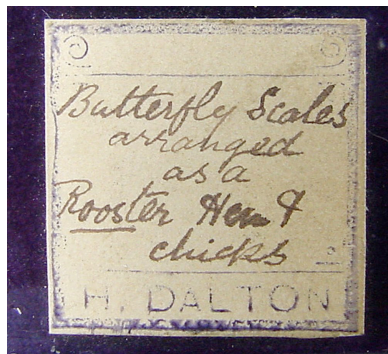 Butterfly Scales
arranged
as a
Rooster Hen &
chicks
H. DALTON